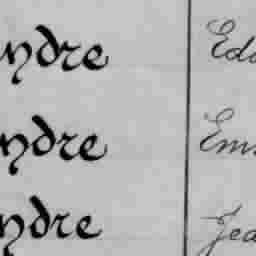 ndre Edo
ndre Em
ndre Jea